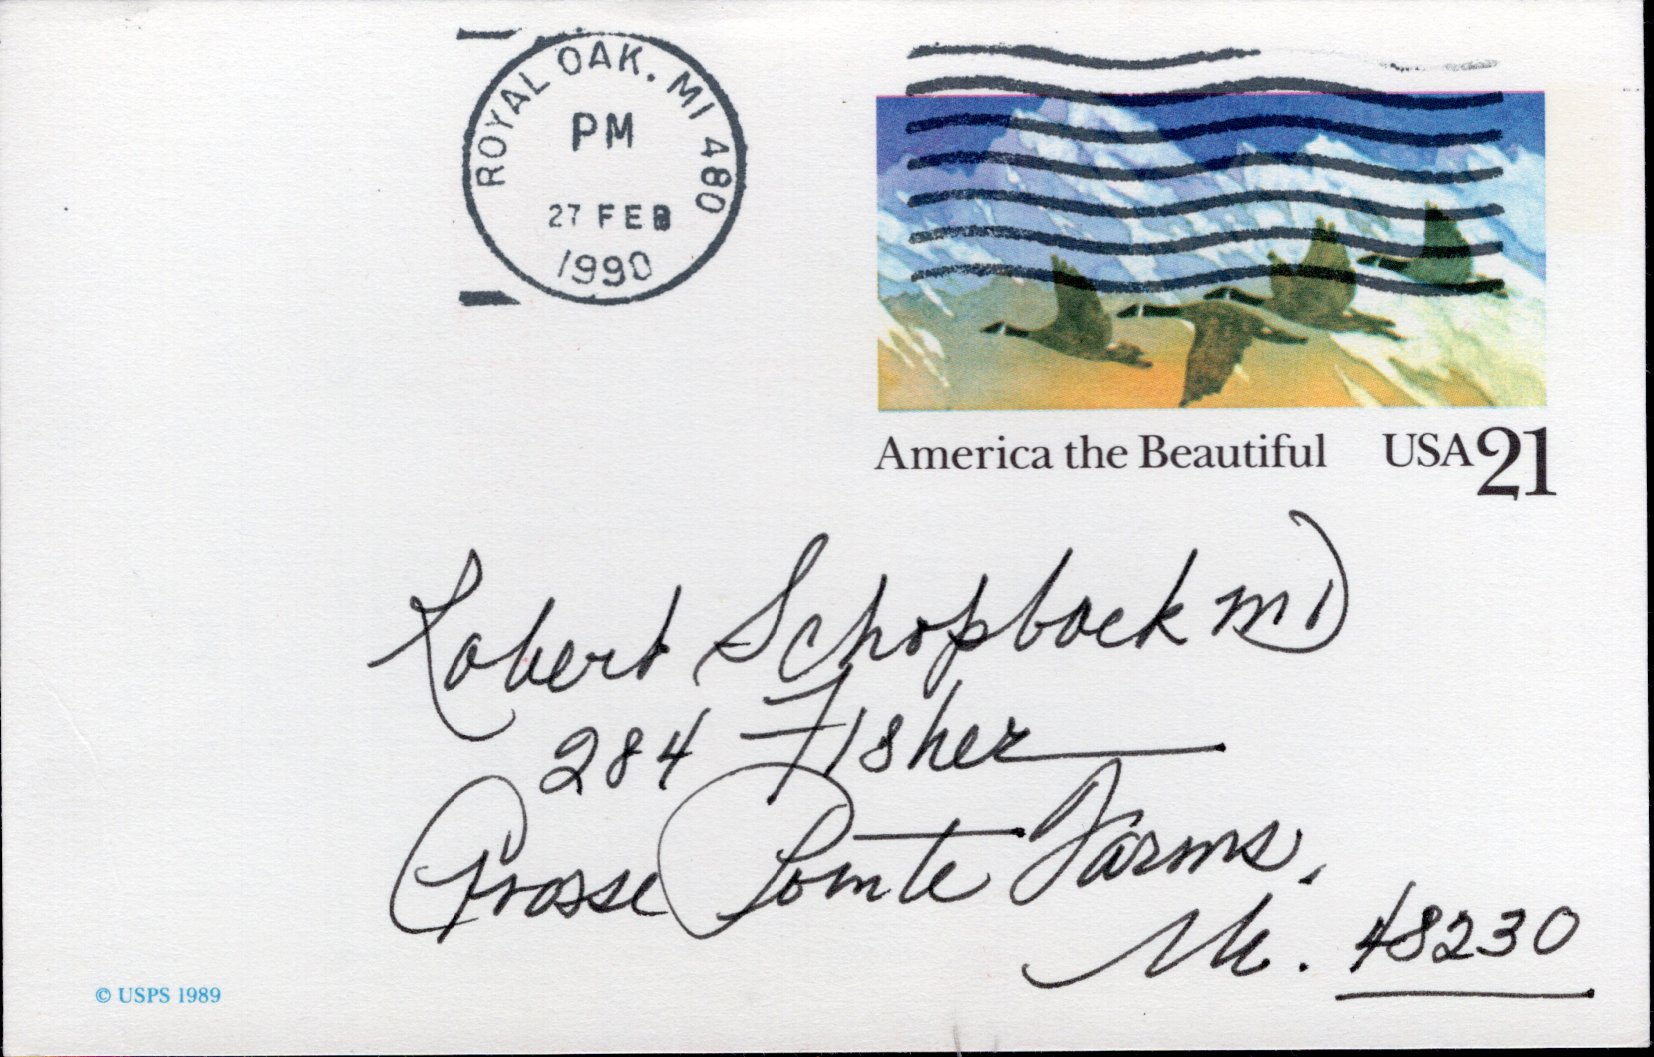 ROYAL OAK. MI 480
PM
27 FEB
1990
America the Beautiful USA 21
Robert Schopbach MD
284 Fisher
Grosse Pointe Farms,
Mi. 48230
© USPS 1989